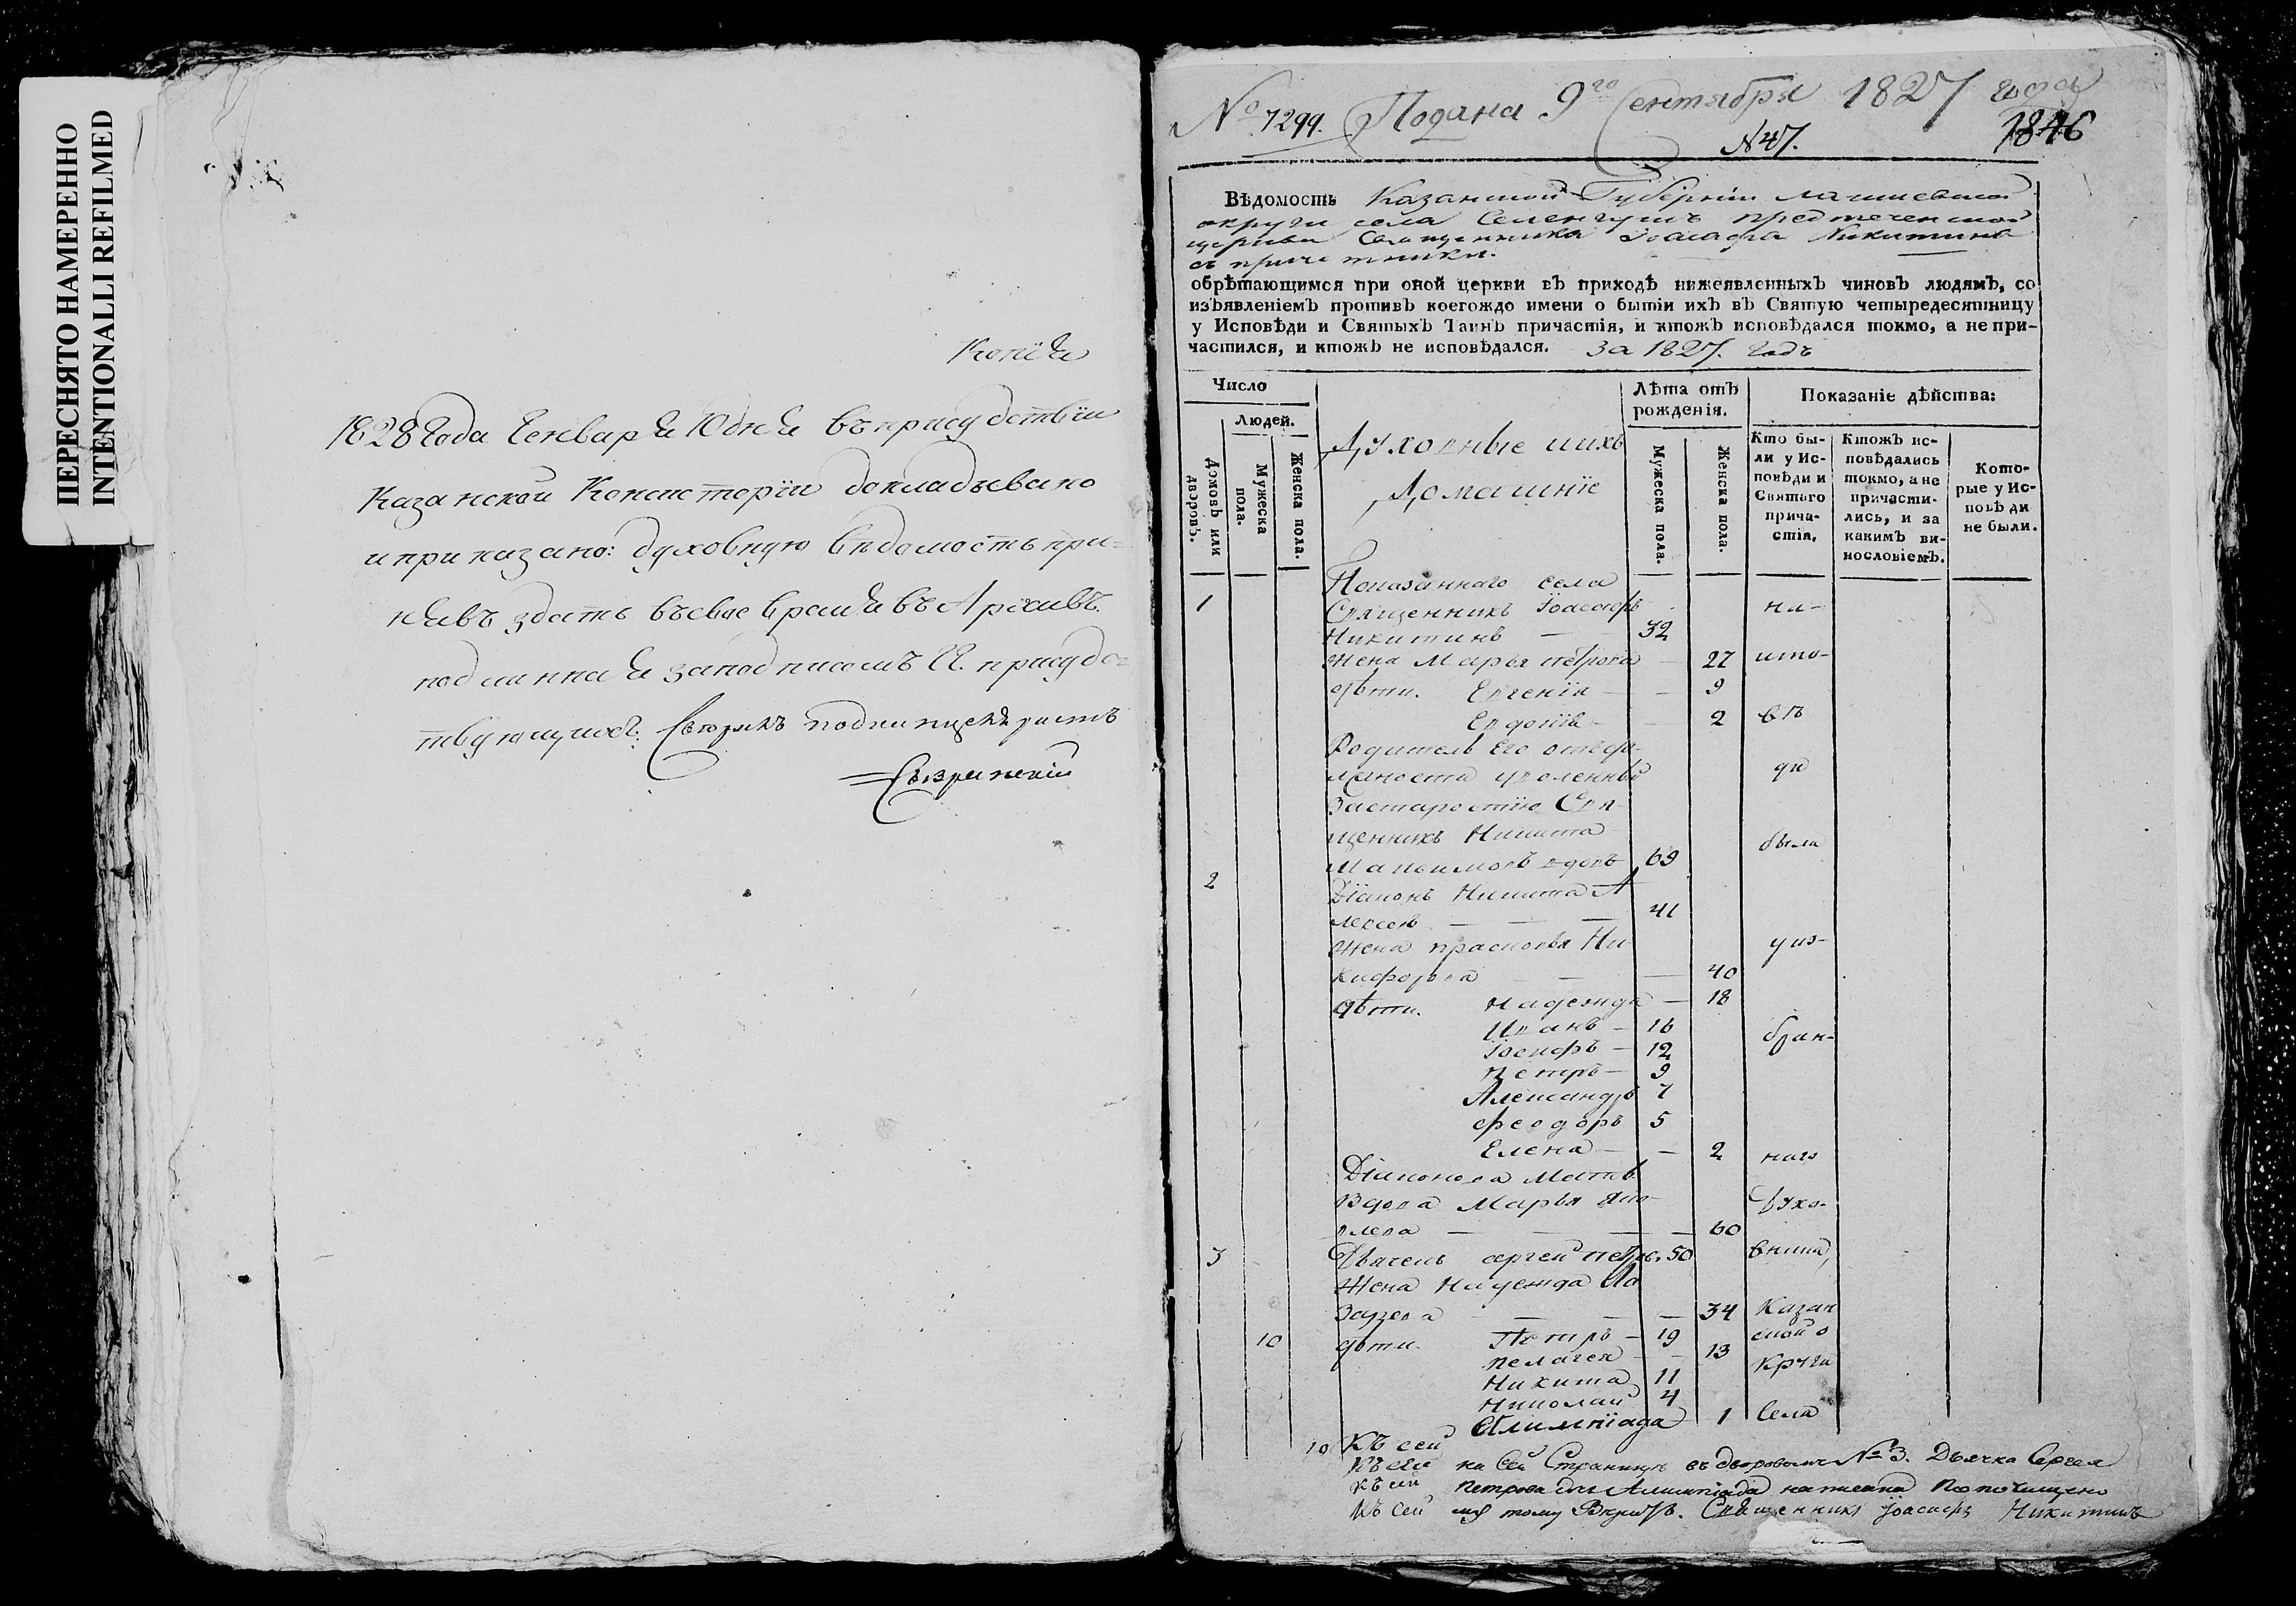 ПЕРЕСНЯТО НАМЕРЕННО
INTENTIONALLI REFILMED
Копія
1828 Года Генваря 10 дня въ присудствіи
Казанской Консисторіи докладывано
и приказано: духовную вѣдомость при=
нявъ здать въ свое время въ Архивъ.
подлинная за подписомъ
присудс=
твующихъ.
№ 7299. Подана 9го Сентября 1827 года
№ 47. 1846
Вѣдомость Казанской Губерніи Лаишевской
округи села Селенгушъ предтеченской
церкви Священника Іоасафа Никитина
съ причетники.
обрѣтающимся при оной церкви въ приходѣ нижеявленныхъ чиновъ людямъ, со
изъявленіемъ противъ коегождо имени о бытіи ихъ въ Святую четыредесятницу
у Исповѣди и Святыхъ Таинъ причастія, и ктожъ исповѣдался токмо, а не при-
частился, и ктожъ не исповѣдался. За 1827. Годъ
Число
Людей.
Домовъ или дворовъ.
Мужеска пола.
Женска пола.
Духовные и ихъ
Домашніе
Лѣта отъ рожденія.
Мужеска пола.
Женска пола.
Показаніе дѣйства:
Кто бы-
ли у Ис-
повѣди и
Святаго
прича-
стія,
Ктожъ ис-
повѣдались
токмо, а не
причасти-
лись, и за
какимъ ви-
нословіемъ.
Кото-
рые у Ис-
повѣди
не были.
Показаннаго села
1 Священникъ Іоасафъ
Никитинъ — 32
Жена Марья петрова — 27
дѣти. Евгенія — — 9
Евдокія — — 2
Родитель Его отъ до-
лжности уволенный
За старостію Свя-
щенникъ Никита
Максимовъ вдовъ 69
2 Діаконъ Никита А
лексѣевъ — — — 41
Жена прасковья Ни-
кифорова — — 40
дѣти. Надежда — 18
Иванъ — 16
Іосифъ — 12
Петръ — 9
Александръ 7
Феодоръ 5
Елена — — 2
Діаконова Мать
Вдова Марья
60
3 Дьячекъ сергей петро. 50
Жена Надежда Ла
зарева — — — 34
10 дѣти. Петръ — 19
пелагея — 13
Никита 11
Николай 4
Олимпіада 1
ны
была
у из-
бран-
наго
духо-
вника
Казан
ской о
круги
Села
10 Къ сей
Къ сей на сей Страницѣ въ дворовомъ № 3. Дьячка Сергея
къ сей Петрова дочь Алимпіада написана По почищено
Къ сей му тому Священникъ Іоасафъ Никитинъ